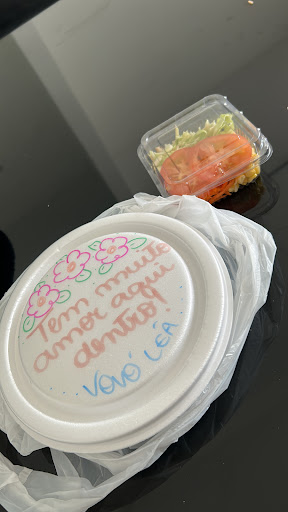 Tem muito
amor aqui
dentro!
VOVÓ LÉA